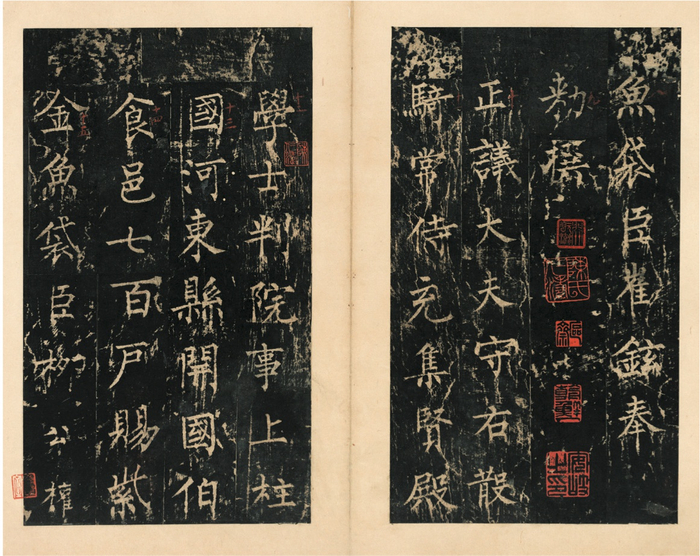 魚袋臣崔鉉奉
敕撰
正議大夫守右散
騎常侍充集賢殿
學士判院事上柱
國河東縣開國伯
食邑七百戶賜紫
金魚袋臣柳公權